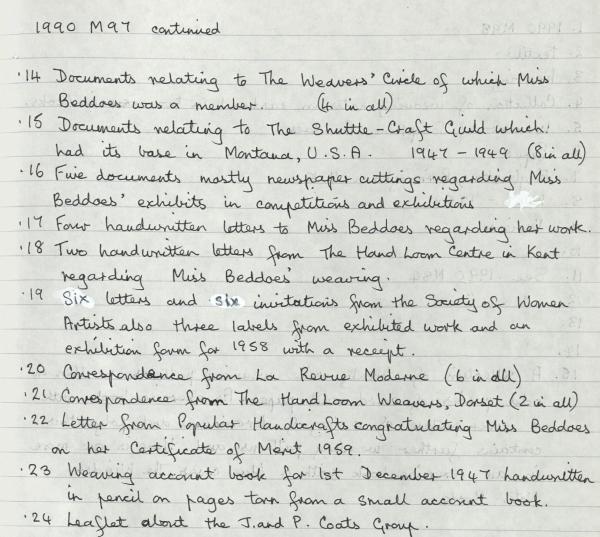 1990 M97 continued
.14 Documents relating to The Weavers' Circle of which Miss
Beddoes was a member. (4 in all)
.15 Documents relating to The Shuttle-Craft Guild which
had its base in Montana, U.S.A. 1947 - 1949 (8 in all)
.16 Five documents mostly newspaper cuttings regarding Miss
Beddoes' exhibits in competitions and exhibitions
.17 Four handwritten letters to Miss Beddoes regarding her work.
.18 Two handwritten letters from The Hand Loom Centre in Kent
regarding Miss Beddoes' weaving.
.19 Six letters and six invitations from the Society of Women
Artists also three labels from exhibited work and an
exhibition form for 1958 with a receipt.
.20 Correspondence from La Revue Moderne (6 in all)
.21 Correspondence from The Hand Loom Weavers, Dorset (2 in all)
.22 Letter from Popular Handicrafts congratulating Miss Beddoes
on her Certificate of Merit 1959.
.23 Weaving account book for 1st December 1947 handwritten
in pencil on pages torn from a small account book.
.24 Leaflet about the J. and P. Coats Group.